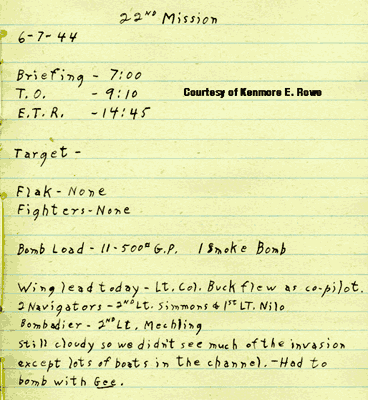 22ND Mission
6-7-44
Briefing - 7:00
T.O. - 9:10
Courtesy of Kenmore E. Rowe
E.T.R. - 14:45
Target -
Flak - None
Fighters - None
Bomb Load - 11-500# G.P. 1 Smoke Bomb
Wing lead today - Lt. Col. Buck flew as co-pilot.
2 Navigators - 2ND Lt. Simmons & 1ST LT. Nilo
Bombadier - 2ND Lt. Mechling
Still cloudy so we didn't see much of the invasion
except lots of boats in the channel. - Had to
bomb with Gee.